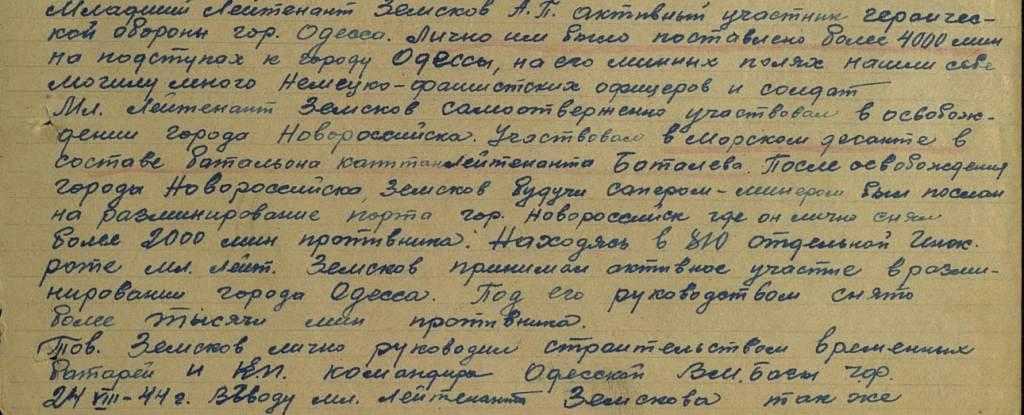 Младший Лейтенант Земсков А.П. активный участник героичес-
кой обороны гор. Одесса. Лично им было поставлено более 4000 мин
на подступах к городу Одессы, на его минных полях нашли себе
могилу много немецко-фашистских офицеров и солдат
Мл. Лейтенант Земсков самоотверженно участвовал в освобож-
дении города Новороссийска. Участвовал в морском десанте в
составе батальона капитан Лейтенанта Боталева. После освобождения
города Новороссийска, Земсков будучи сапером-минером был послан
на разминирование порта гор. Новороссийск где он лично снял
более 2000 мин противника. Находясь в 810 отдельной Инж.
роте мл. лейт. Земсков принимал активное участие в разми-
нировании города Одесса. Под его руководством снято
более тысячи мин противника.
Тов. Земсков лично руководил строительством временных
батарей и К.П. командира Одесской В.М. Базы Ч.Ф.
24 VIII-44 г. Взводу мл. Лейтенанта Земскова так же